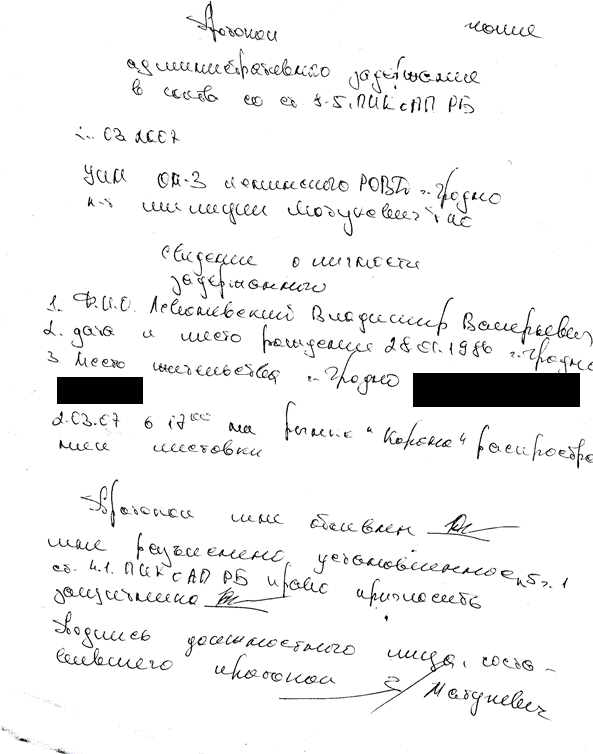 Протокол копие
административного задержание
в соотв со ст 8-5. ПИКоАП РБ
03.2007
УИМ ОМ-3 Ленинского РОВД г. Гродно
л-т милиции Матукевич
сведение о личности
задержанного
1. Ф.И.О. Левоневский Владимир Валерьевич
2. дата и место рождение 28.01.1986 г. Гродно
3 Место жительства г. Гродно
2.03.07 в 17 00 на рынке "Корона" распростра
нял листовки
Протокол мне объявлен
мне разъяснено установленное п.5 ч.1
ст. 4.1. ПИКоАП РБ право пригласить
защитника
Подпись должностного лица, соста-
вившего протокол Матукевич